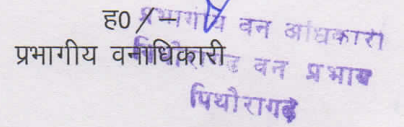 ह0 /-
प्रभागीय वनाधिकारी
प्रभागीय वन अधिकारी
पिथौरागढ वन प्रभाग
पिथौरागढ़